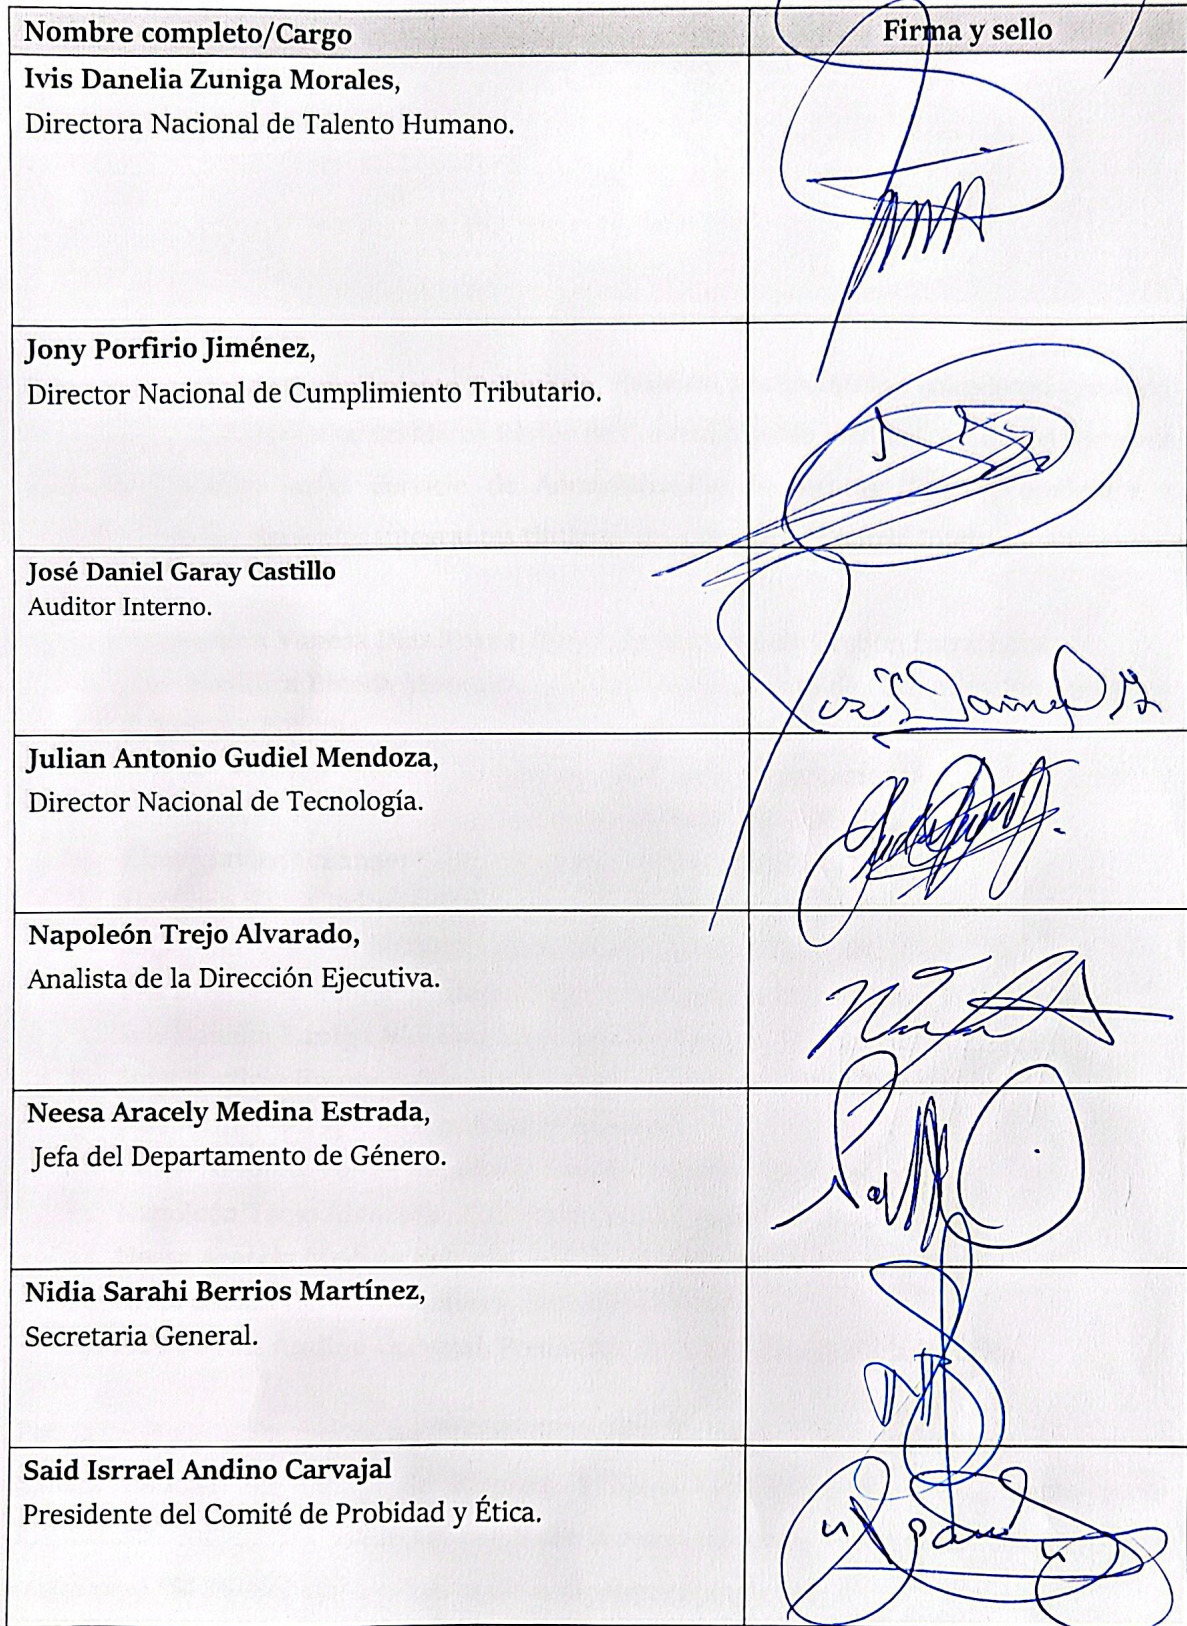 Nombre completo/Cargo
Firma y sello
Ivis Danelia Zuniga Morales,
Directora Nacional de Talento Humano.
Jony Porfirio Jiménez,
Director Nacional de Cumplimiento Tributario.
José Daniel Garay Castillo
Auditor Interno.
José Daniel G
Julian Antonio Gudiel Mendoza,
Director Nacional de Tecnología.
Napoleón Trejo Alvarado,
Analista de la Dirección Ejecutiva.
Neesa Aracely Medina Estrada,
Jefa del Departamento de Género.
Nidia Sarahi Berrios Martínez,
Secretaria General.
Said Isrrael Andino Carvajal
Presidente del Comité de Probidad y Ética.